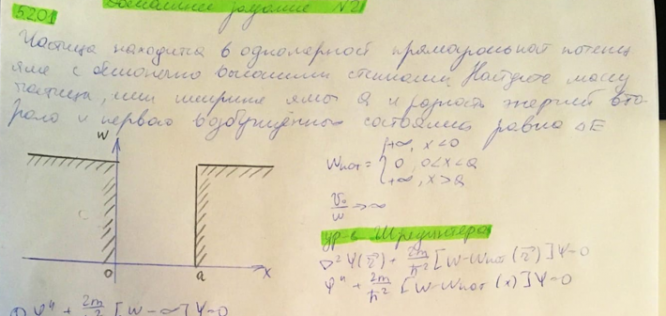 Домашнее задание №2
5.20.
Частица находится в одномерной прямоугольной потенц
яме с бесконечно высокими стенками. Найдите массу
частицы, если ширина ямы a и разность энергий вто-
рого и первого возбуждённых состояний равна ΔE
W
Wпот = { +∞, x<0
0, 0<x<a
+∞, x>a
→∞
0 a x
ур-е Шредингера
∇²Ψ(r⃗) + 2m/ħ² [W-Wпот(r⃗)]Ψ=0
Ψ'' + 2m/ħ² [W-Wпот(x)]Ψ=0
Ψ'' + 2m/ħ² [W-∞]Ψ=0